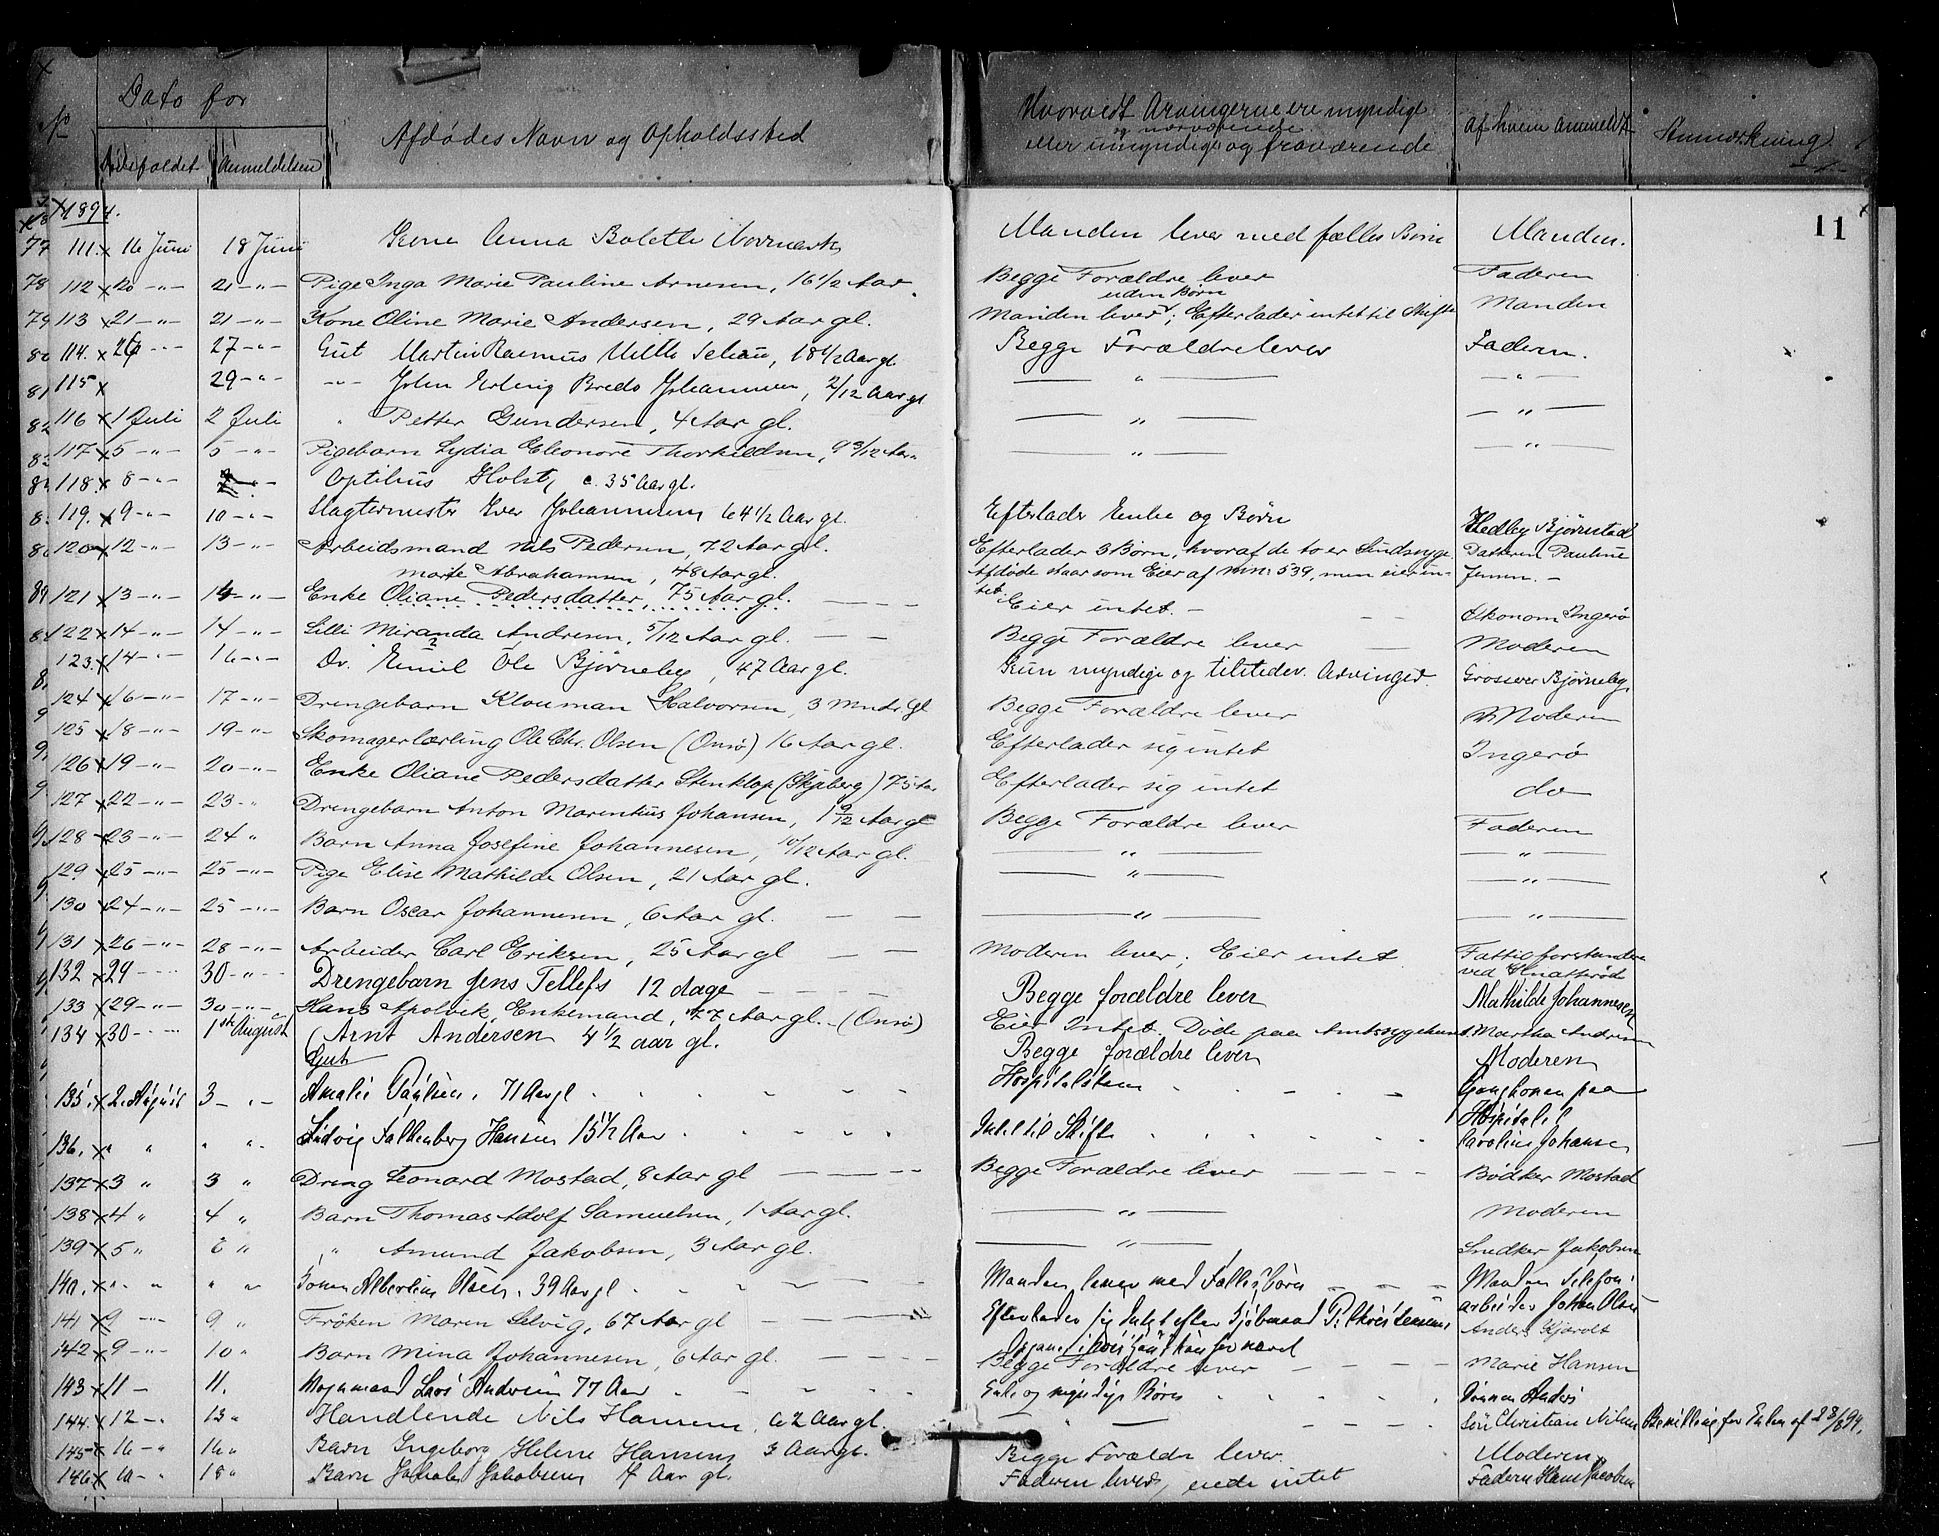 No
Dato for
Dødsfaldet Anmeldelsen
Afdødes Navn og Opholdssted
Hvorvidt Arvingerne ere myndige
og nærværende
eller umyndige og fraværende
Af hvem anmeldt
Anmærkning
11
1894.
111. 16 Juni 18 Juni Kone Anna Bolette Manden lever med fælles Børn Manden.
112 20 -"- 21 -"- Pige Inga Marie Pauline Arnesen, 16 1/2 Aar. Begge Forældre lever Faderen
uden Børn
113 21 -"- 21 -"- Kone Oline Marie Andersen, 29 Aar gl. Manden lever; Efterlader intet til Skifte Manden
114. 26 -"- 27 -"- Gut Martin Rasmus 18 1/2 Aar gl Begge Forældre lever Faderen.
115 29 -"- -"- John Erling Bredo Johannesen, 2/12 Aar gl — " — — " —
116 1 Juli 2 Juli " Petter Gundersen, 4 Aar gl. — " — — " —
117 5 -"- 5 -"- Pigebarn Lydia Eleonore Thorkildsen, 9 9/12 Aar — " — — " —
118. 8 -"- Optilius Holst, c. 35 Aar gl.
119. 9 -"- 10 -"- Slagtermester Iver Johannesen 64 1/2 Aar gl. Efterlader Enke og Børn Hedley Bjørnstad
120 12 -"- 13 -"- Arbeidsmand Nils Pedersen, 72 Aar gl. Efterlader 3 Børn, hvoraf de to er Sindssyge. Datteren Pauline
Marie Abrahamsen, 48 Aar gl. Afdøde staar som Eier af mn: 539, men eier in- Jensen. -
tet
121 13 -"- 14 -"- Enke Oliane Pedersdatter, 75 Aar gl. Eier intet. - Økonom Ingerø
122 14 -"- 14 -"- Lilli Miranda Andresen, 5/12 Aar gl. Begge Forældre lever Moderen
123. 14 -"- 16 -"- Dr. Emil Ole Bjørneby, 47 Aar gl. Kun myndige og tilstedev. Arvinger. Grosserer Bjørneby.
124 16 -"- 17 -"- Drengebarn Klouman Halvorsen, 3 Mndr. gl Begge Forældre lever Moderen
125 18 -"- 19 -"- Skomagerlærling Ole Chr. Olsen (Onsø) 16 Aar gl. Efterlader sig intet Ingerø
126 19 -"- 20 -"- Enke Oliane Pedersdatter Stenklop (Skjeberg) 75 Aar Efterlader sig intet do
127 22 -"- 23 -"- Drengebarn Anton Marentius Johansen, 1 9/12 Aar gl Begge Forældre lever Faderen
128 23 -"- 24 " Barn Anna Josefine Johannesen, 10/12 Aar gl. — " — — " —
129 25 -"- 25 -"- Pige Elise Mathilde Olsen, 21 Aar gl. — " — — " —
130 24 -"- 25 -"- Barn Oscar Johannesen, 6 Aar gl. — " — — " —
131 26 -"- 28 -"- Arbeider Carl Eriksen, 25 Aar gl Moderen lever, Eier intet. Fattigforstander
ved Knatterød
132 29 -"- 30 -"- Drengebarn Jens Tellefs 12 dage Begge forældre lever Mathilde Johannesen
133 29 -"- 30 -"- Hans Apolvik, Enkemand, 77 Aar gl. - (Onsø) Eier Intet. Døde paa Amtssygehuset. Martha Andresen
134 30 -"- 1ste August Arnt Andersen 4 1/2 aar gl. Begge forældre lever Moderen
Gut
135. 2. August 3 -"- Amalie Paulsen. 71 Aar gl Hospitalslem Gangkonen paa
Hospitalet
136. " " " " Ludvig Falkenberg Hansen 15 1/2 Aar Intet til Skifte Caroline Johansen
137 3 " 3 " Dreng Leonard Mostad, 8 Aar gl Begge Forældre lever Bødker Mostad
138 4 " 4 " Barn Thomas Adolf Samuelsen, 1 Aar gl. — " — Moderen
139 5 " 6 " " Amund Jakobsen, 3 Aar gl. — " — Snedker Jakobsen
140. " " " " Konen Albertine Olsen. 39 Aar gl Manden lever med Fælles Børn Manden Telefon-
arbeider Johan Olsen
141 9 -"- 9 " Frøken Maren Selvig, 67 Aar gl Efterlader sig Intet efter Anders Kjærvolt
142 9 -"- 10 " Barn Mina Johannesen, 6 Aar gl. Begge Forældre lever Marie Hansen
143 11 - 11. Lars Andersen 77 Aar Enke og myndige Børn Anders
144. 12 -"- 13 " Handlende Nils Hansen 62 Aar gl. — " — Søn Christian Nilsen Bevilling for Enken af 23/8 94.
145 16 -"- 16 " Barn Ingeborg Helene Hansen 3 Aar gl. Begge Forældre lever. Moderen
146 18 " Barn Jakobsen 4 Aar gl. Faderen lever, eiede intet Faderen Hans Jacobsen